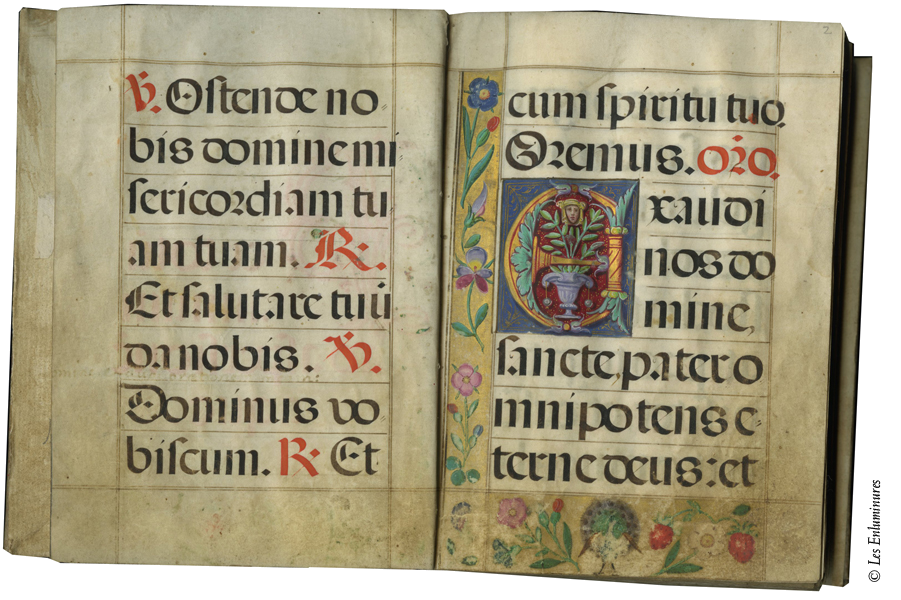 ℣. Ostende no⸗
bis domine mi⸗
sericordiam tu
am tuam. ℟.
Et salutare tuū
da nobis. ℣.
Dominus vo
biscum. ℟. Et
2.
cum spiritu tuo.
Oremus. or̄o.
Exaudi
nos do
mine,
sancte, pater o
mnipotens e⸗
terne deus: et
© Les Enluminures